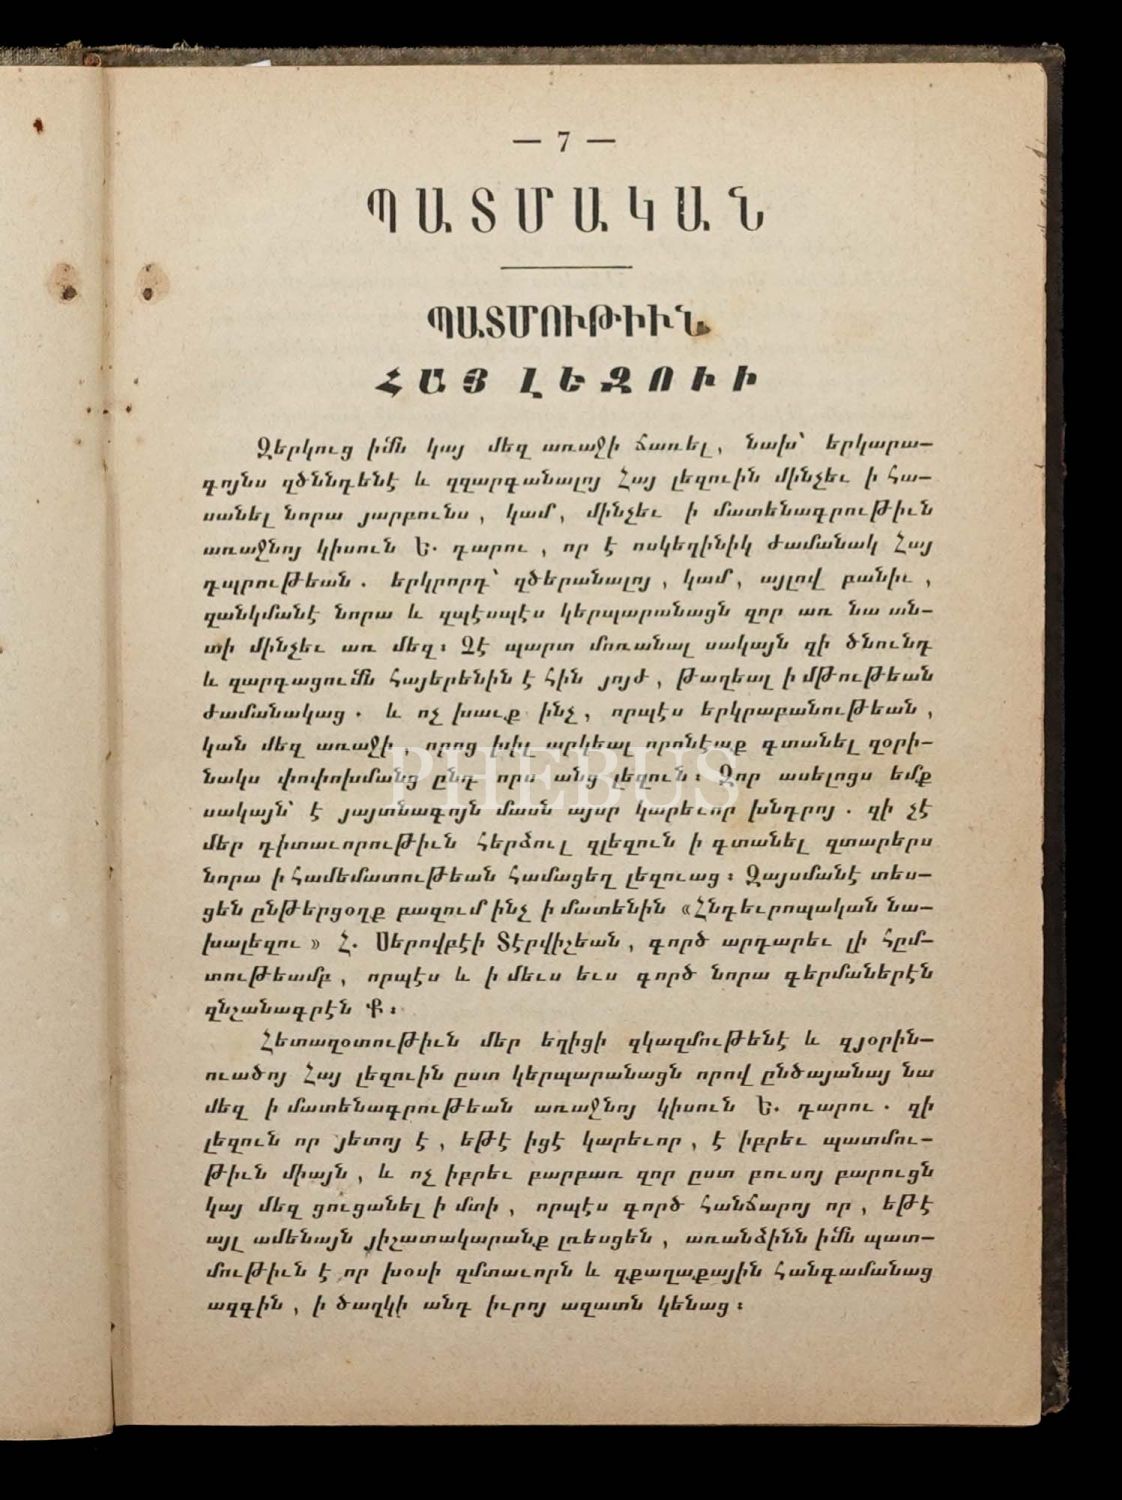 — 7 —
ՊԱՏՄԱԿԱՆ
ՊԱՏՄՈՒԹԻՒՆ
ՀԱՅ ԼԵԶՈՒԻ
Զերկուց իմն կայ մեզ առաջի ճառել, նախ՝ երկարա–
գոյնս զծննդենէ և զզարգանալոյ Հայ լեզուին մինչեւ ի հա–
սանել նորա յարբունս, կամ, մինչեւ ի մատենագրութիւն
առաջնոյ կիսուն Ե. դարու, որ է ոսկեղինիկ ժամանակ Հայ
դպրութեան. երկրորդ՝ զծերանալոյ, կամ, այլով բանիւ,
զանկմանէ նորա և զպէսպէս կերպարանացն զոր առ նա ան–
տի մինչեւ առ մեզ։ Չէ պարտ մոռանալ սակայն զի ծնունդ
և զարգացումն հայերենին է հին յոյժ, թաղեալ ի մթութեան
ժամանակաց. և ոչ խաւք ինչ, որպէս երկրաբանութեան,
կան մեզ առաջի, որոց խիլ արկեալ որոնէաք գտանել զօրի–
նակս փոփոխմանց ընդ որս անց լեզուն։ Զոր ասելոցս եմք
սակայն՝ է յայտնագոյն մասն այսր կարեւոր խնդրոյ. զի չէ
մեր դիտաւորութիւն հերձուլ զլեզուն ի գտանել զտարերս
նորա ի համեմատութեան համացեղ լեզուաց։ Զայսմանէ տես–
ցեն ընթերցօղք բազում ինչ ի մատենին «Հնդեւրոպական նա–
խալեզու» Հ. Սերովբէի Տէրվիշեան, գործ արդարեւ լի հըմ–
տութեամբ, որպէս և ի մեւս եւս գործ նորա գերմաներէն
զնչանագրէն Ք։
Հետազօտութիւն մեր եղիցի զկազմութենէ և զյօրին–
ուածոյ Հայ լեզուին ըստ կերպարանացն որով ընծայանայ նա
մեզ ի մատենագրութեան առաջնոյ կիսուն Ե. դարու. զի
լեզուն որ յետոյ է, եթէ իցէ կարեւոր, է իբրեւ պատմու–
թիւն միայն, և ոչ իբրեւ բարբառ զոր ըստ բուսոյ բարուցն
կայ մեզ ցուցանել ի մտի, որպէս գործ հանճարոյ որ, եթէ
այլ ամենայն յիշատակարանք լռեսցեն, առանձինն իմն պատ–
մութիւն է որ խօսի զմտաւորն և զքաղաքային հանգամանաց
ազգին, ի ծաղկի անդ իւրոյ ազատն կենաց։
PHEBUS